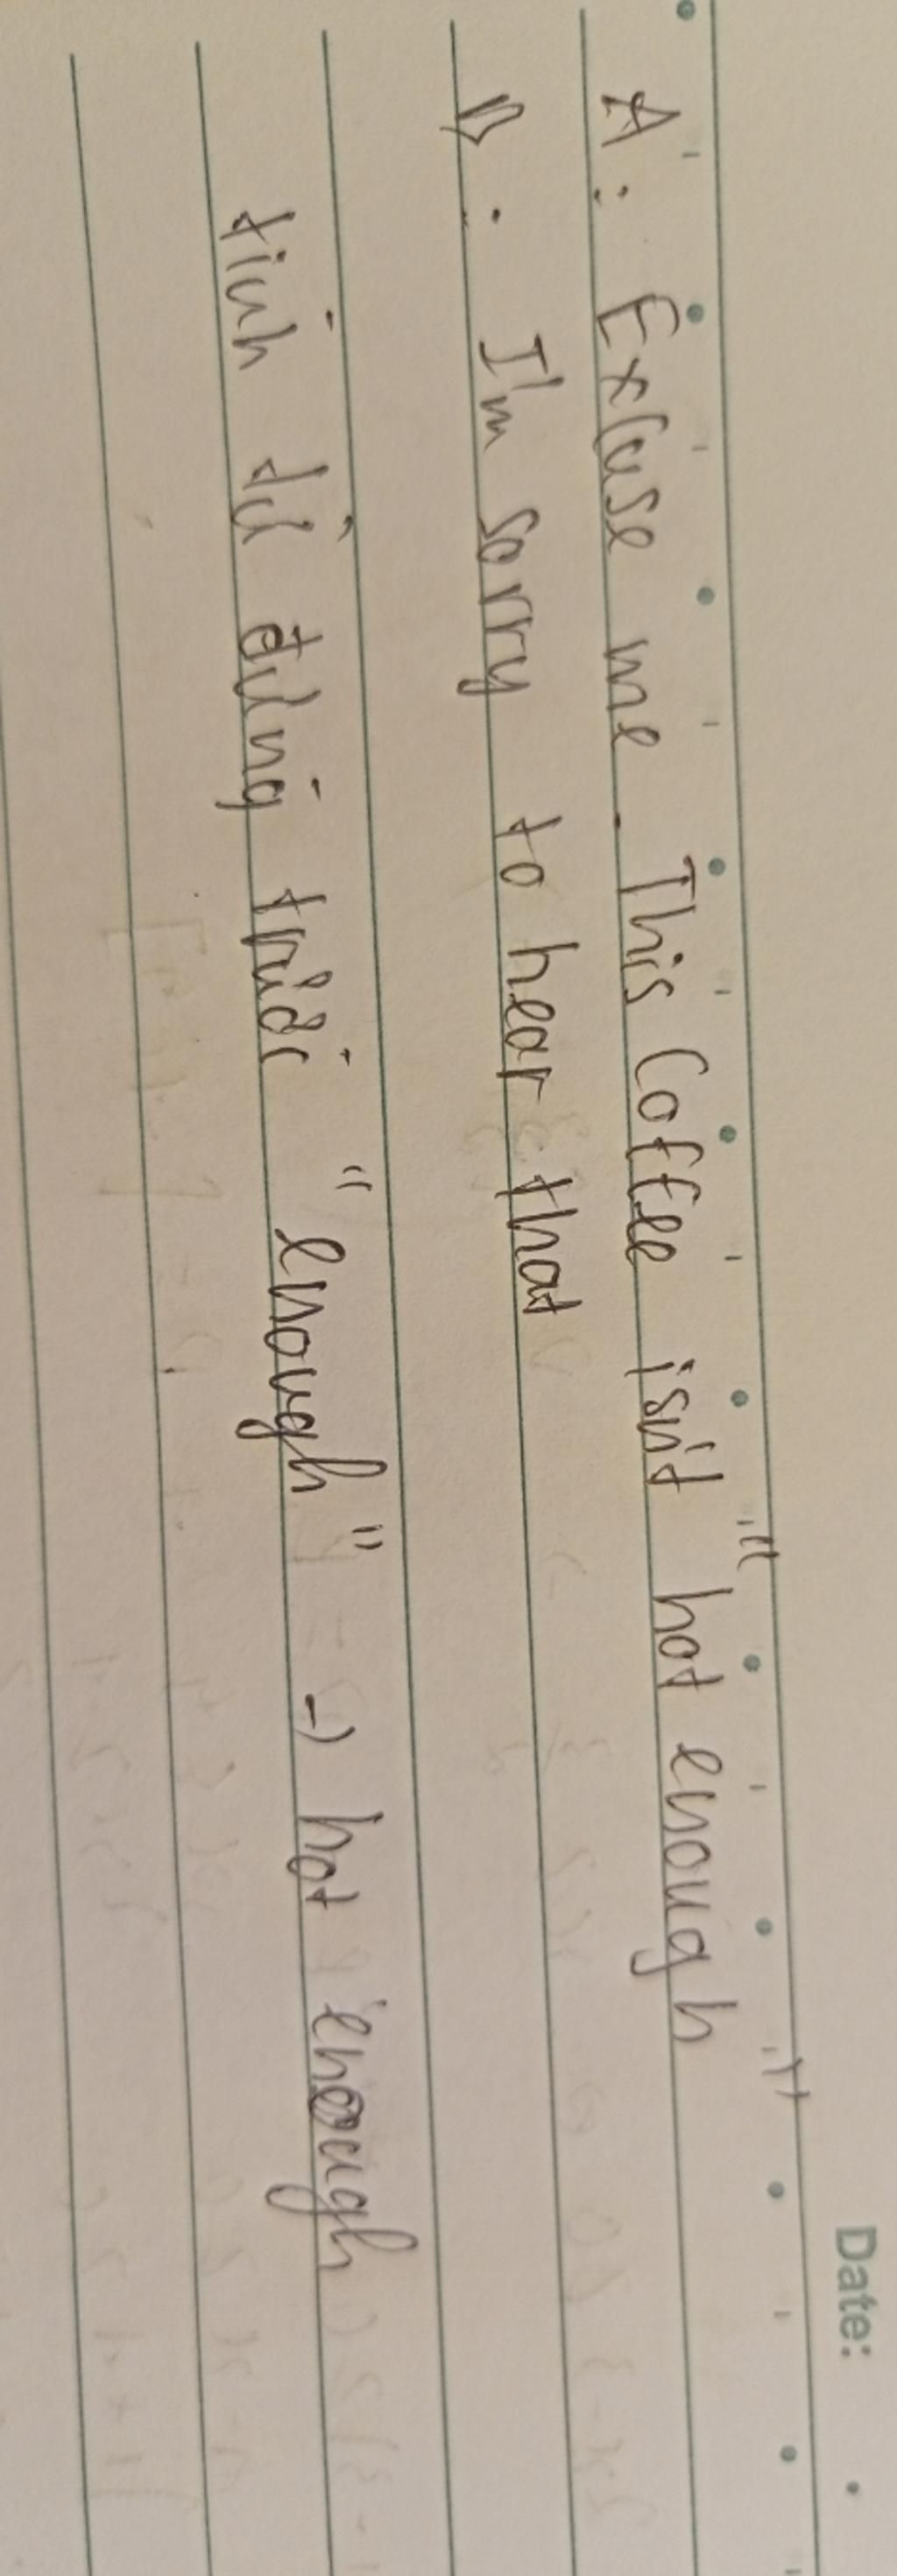 Date:
A: Excuse me. This Coffee isn't "hot enough"
B: I'm sorry to hear that
tính từ đứng trước "enough" → hot enough